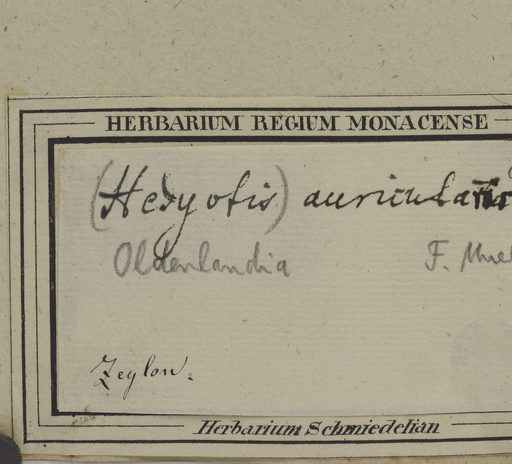 HERBARIUM REGIUM MONACENSE
(Hedyotis) auricularia
Oldenlandia F. Muel
Zeylon.
Herbarium Schmiedelian